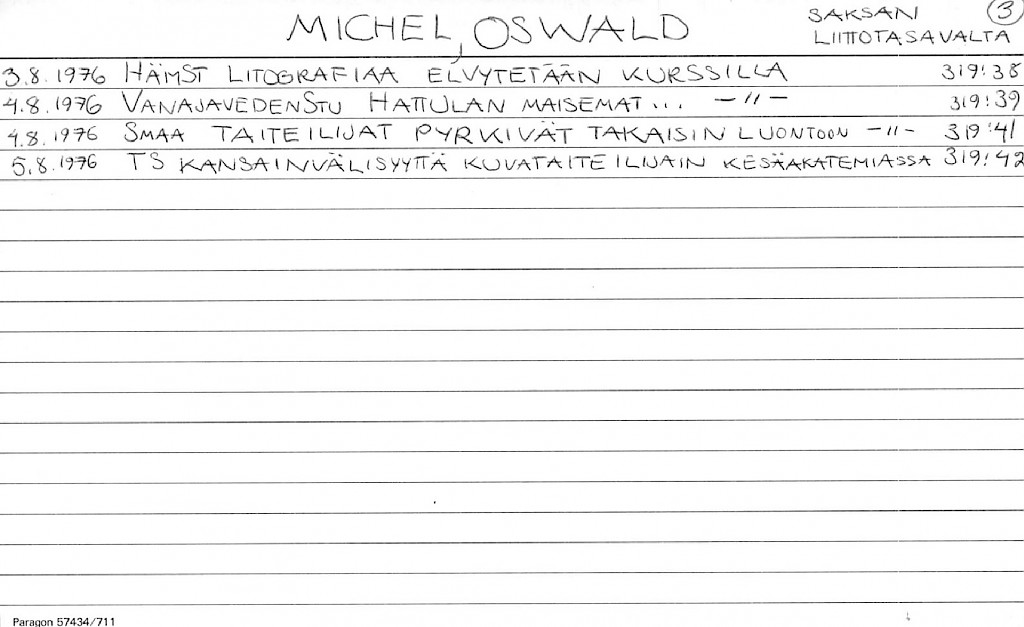 MICHEL, OSWALD
SAKSAN LIITTOTASAVALTA
3
3.8.1976 HÄMST LITOGRAFIAA ELVYTETÄÄN KURSSILLA 319:38
4.8.1976 VANAJAVEDENSTU HATTULAN MAISEMAT... -"- 319:39
4.8.1976 SMAA TAITEILIJAT PYRKIVÄT TAKAISIN LUONTOON -"- 319:41
5.8.1976 TS KANSAINVÄLISYYTTÄ KUVATAITEILIJAIN KESÄAKATEMIASSA 319:42
Paragon 57434/711